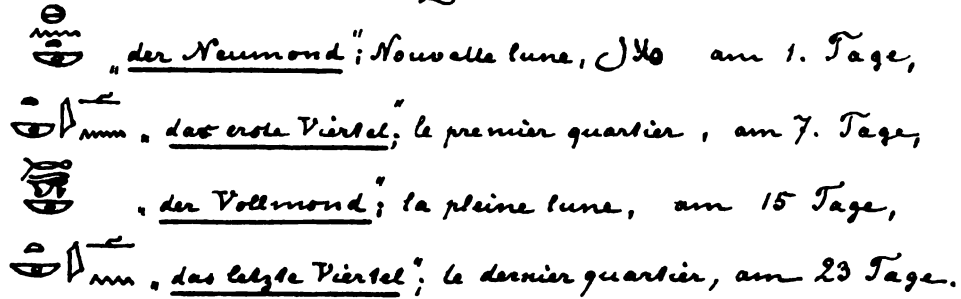 „der Neumond“; Nouvelle lune, am 1. Tage,
„das erste Viertel“; le premier quartier, am 7. Tage,
„der Vollmond“; la pleine lune, am 15 Tage,
„das letzte Viertel“; le dernier quartier, am 23 Tage.